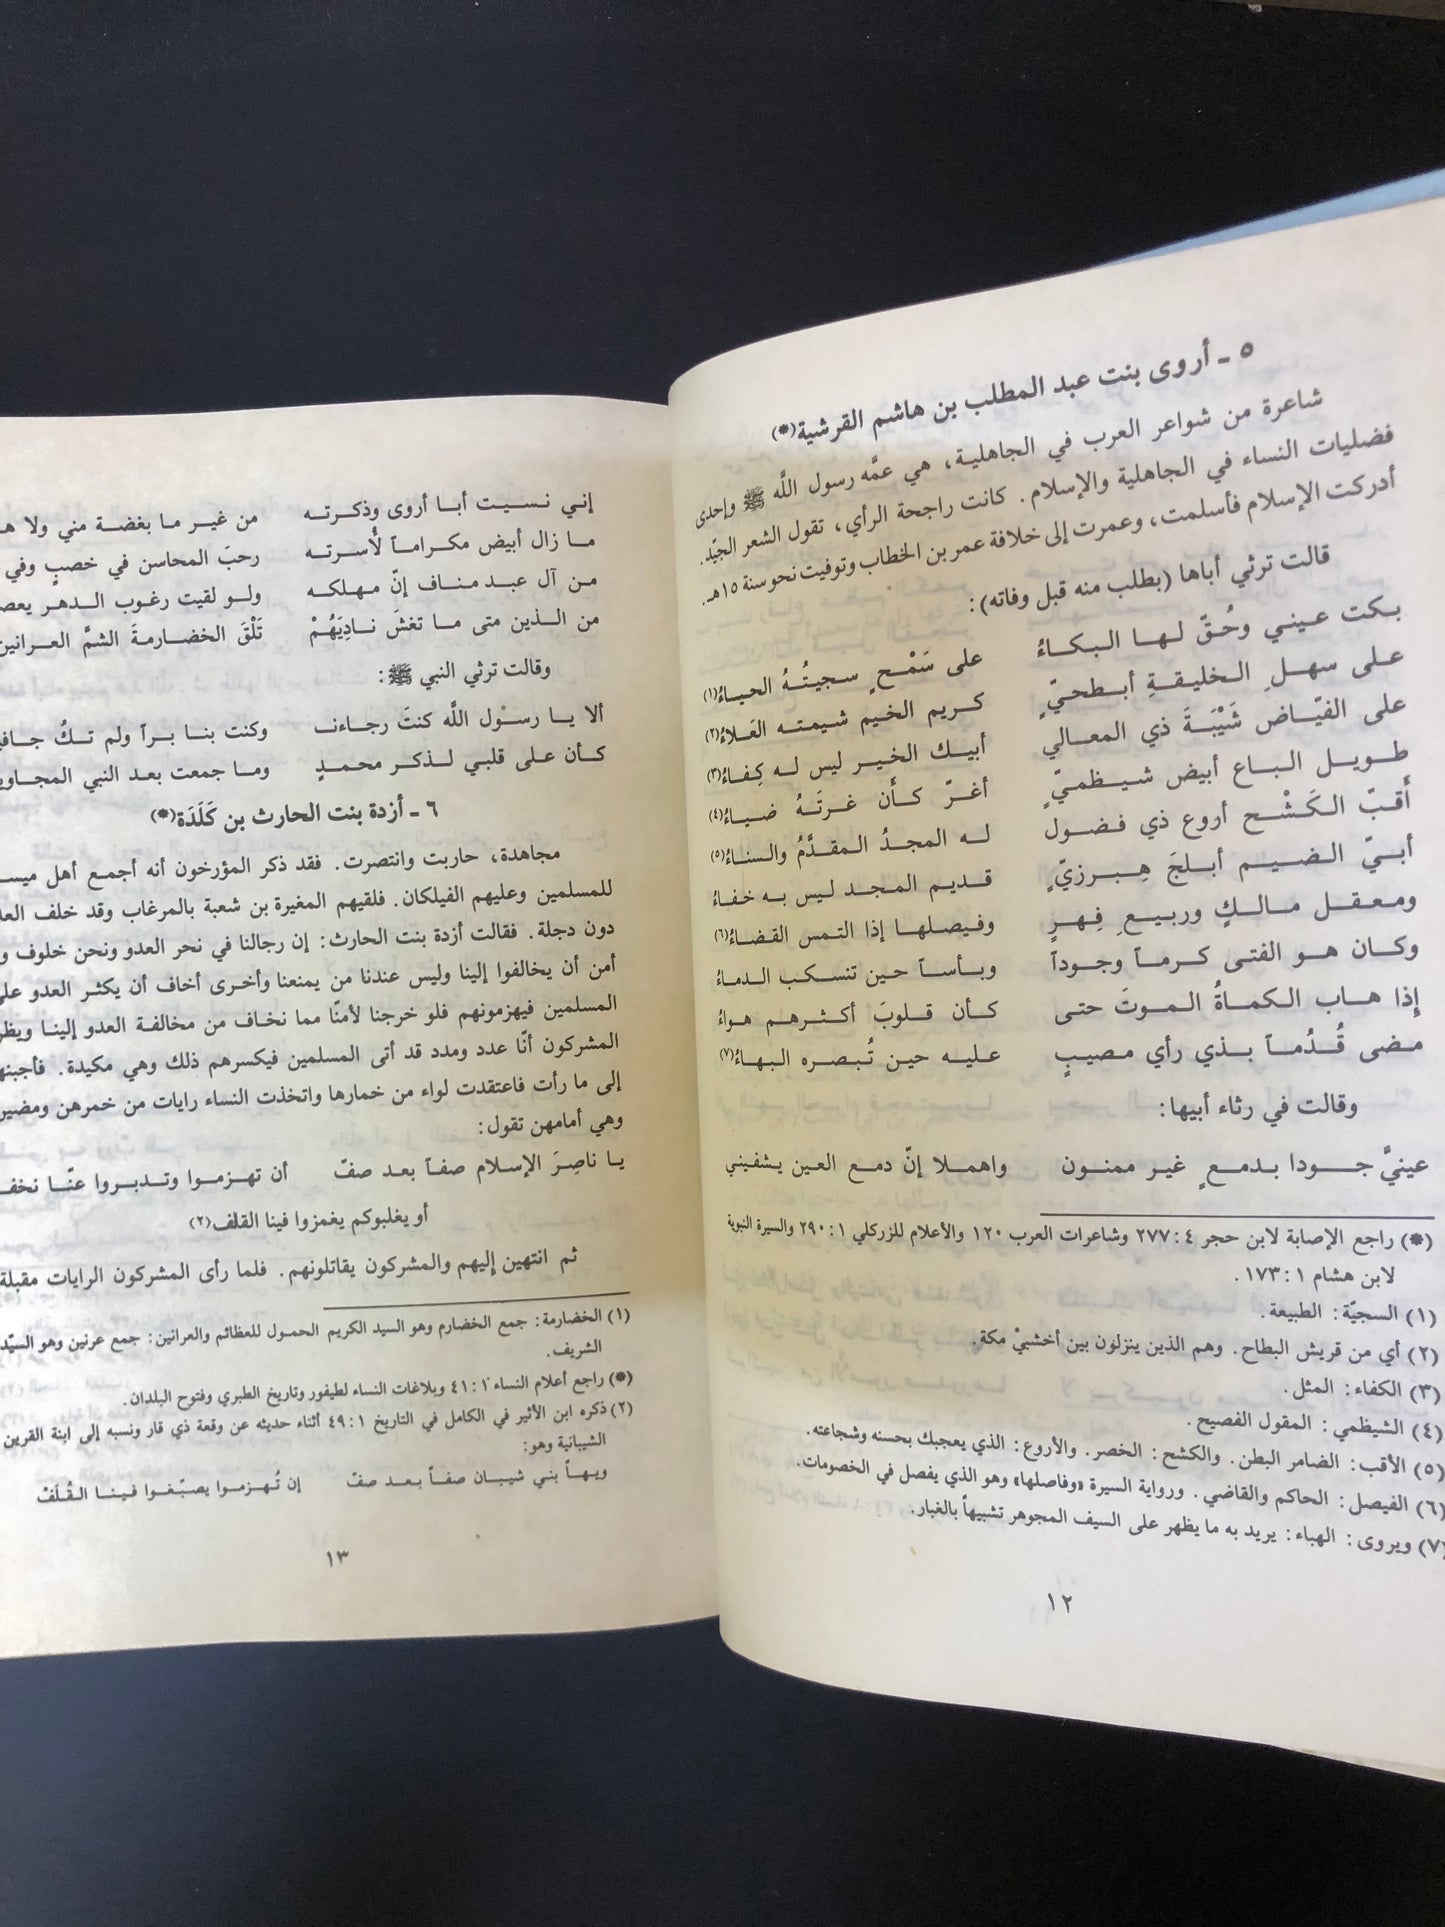 ٥ ـ أروى بنت عبد المطلب بن هاشم القرشية(*)
شاعرة من شواعر العرب في الجاهلية، هي عمَّه رسول اللَّه ﷺ وإحدى
فضليات النساء في الجاهلية والإسلام. كانت راجحة الرأي، تقول الشعر الجيّد.
أدركت الإسلام فأسلمت، وعمرت إلى خلافة عمر بن الخطاب وتوفيت نحو سنة ١٥هـ.
قالت ترثي أباها (بطلب منه قبل وفاته):
بكت عيني وحُقّ لها البكاءُ على سَمْحٍ سجيتُهُ الحياءُ(١)
على سهلِ الخليقةِ أبطحيٍّ كريم الخيم شيمته العَلاءُ(٢)
على الفيّاض شَيْبَةَ ذي المعالي أبيك الخير ليس له كِفاءُ(٣)
طويل الباع أبيض شيظميٍّ أغرّ كأن غرتَهُ ضياءُ(٤)
أَقبّ الكَشْح أروع ذي فضول له المجدُ المقدَّمُ والسناءُ(٥)
أبيّ الضيم أبلجَ هِبرزيٍّ قديم المجد ليس به خفاءُ
ومعقل مالكٍ وربيعِ فِهرٍ وفيصلها إذا التمس القضاءُ(٦)
وكان هو الفتى كرماً وجوداً وبأساً حين تنسكب الدماءُ
إذا هاب الكماةُ الموتَ حتى كأن قلوبَ أكثرهم هواءُ
مضى قُدُماً بذي رأي مصيبٍ عليه حين تُبصره البهاءُ(٧)
وقالت في رثاء أبيها:
عينيَّ جودا بدمعٍ غير ممنون واهملا إنّ دمع العين يشفيني
(*) راجع الإصابة لابن حجر ٤: ٢٧٧ وشاعرات العرب ١٢٠ والأعلام للزركلي ١: ٢٩٠ والسيرة النبوية
لابن هشام ١: ١٧٣.
(١) السجيّة: الطبيعة.
(٢) أي من قريش البطاح. وهم الذين ينزلون بين أخشبيْ مكة.
(٣) الكفاء: المثل.
(٤) الشيظمي: المقول الفصيح.
(٥) الأقب: الضامر البطن. والكشح: الخصر. والأروع: الذي يعجبك بحسنه وشجاعته.
(٦) الفيصل: الحاكم والقاضي. ورواية السيرة «وفاصلها» وهو الذي يفصل في الخصومات.
(٧) ويروى: الهباء: يريد به ما يظهر على السيف المجوهر تشبيهاً بالغبار.
١٢
إني نسيت أبا أروى وذكرته من غير ما بغضة مني ولا
ما زال أبيض مكراماً لأسرته رحبَ المحاسن في خصبٍ وفي
من آل عبد مناف إنّ مهلكه ولو لقيت رغوب الدهر
من الذين متى ما تغشَ نادِيَهُمْ تَلْقَ الخضارمةَ الشمَّ العرانين
وقالت ترثي النبي ﷺ:
ألا يا رسول اللَّه كنتَ رجاءنا وكنت بنا براً ولم تكُ
كأن على قلبي لذكر محمدٍ وما جمعت بعد النبي
٦ ـ أزدة بنت الحارث بن كَلَدَة(*)
مجاهدة، حاربت وانتصرت. فقد ذكر المؤرخون أنه أجمع أهل
للمسلمين وعليهم الفيلكان. فلقيهم المغيرة بن شعبة بالمرغاب وقد خلف
دون دجلة. فقالت أزدة بنت الحارث: إن رجالنا في نحر العدو ونحن خلوف
أمن أن يخالفوا إلينا وليس عندنا من يمنعنا وأخرى أخاف أن يكثر العدو
المسلمين فيهزمونهم فلو خرجنا لأمنّا مما نخاف من مخالفة العدو إلينا
المشركون أنّا عدد ومدد قد أتى المسلمين فيكسرهم ذلك وهي مكيدة.
إلى ما رأت فاعتقدت لواء من خمارها واتخذت النساء رايات من خمرهن
وهي أمامهن تقول:
يا ناصِرَ الإسلام صفاً بعد صفّ أن تهزموا وتدبروا عنّا
أو يغلبوكم يغمزوا فينا القلف(٢)
ثم انتهين إليهم والمشركون يقاتلونهم. فلما رأى المشركون الرايات مقبلة
(١) الخضارمة: جمع الخضارم وهو السيد الكريم الحمول للعظائم والعرانين: جمع عرنين وهو السيّد
الشريف.
(*) راجع أعلام النساء ١: ٤١ وبلاغات النساء لطيفور وتاريخ الطبري وفتوح البلدان.
(٢) ذكره ابن الأثير في الكامل في التاريخ ١: ٤٩ أثناء حديثه عن وقعة ذي قار ونسبه إلى ابنة القرين
الشيبانية وهو:
ويهاً بني شيبان صفاً بعد صفّ إن تُهزموا يصبّغوا فينا القُلَفْ
١٣